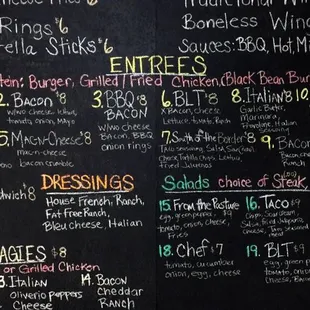 Cheese Fries $6
Traditional Win
Rings $6
Boneless Win
rella Sticks $6
Sauces: BBQ, Hot, Mi
ENTREES
tein: Burger, Grilled/Fried Chicken, (Black Bean Bur
2. Bacon $8
w/wo Cheese
tomato, onion, mayo
3. BBQ $8
BACON
w/wo Cheese
Bacon, BBQ
onion rings
6. BLT $8
Bacon, cheese
Lettuce, tomato, Ranch
8. Italian $8
Garlic Butter,
Marinara,
Provolone, Italian
10.
5. Mac-n-Cheese $8
mac-n-cheese
bacon crumble
7. South of the Border $8
Taco seasoning, Salsa, Sour Cream,
Cheese, Tortilla Chips, Lettuce,
Fried Jalapenos
9. Bacon
Bacon, cheese
Ranch
DRESSINGS
House French, Ranch,
Fat Free Ranch,
Bleu cheese, Italian
dwich $8
Salads choice of Steak,
15. From the Pasture $9
egg, green pepper,
tomato, onion, cheese,
Fries
16. Taco $9
Chips, Sour Cream,
Salsa, Fried Jalapeno
cheese, Taco
18. Chef $7
tomato, cucumber
onion, egg, cheese
19. BLT $9
egg, green pepper,
tomato, onion
Bacon, cheese
AGIES $8
or Grilled Chicken
13. Italian
Oliverio peppers
Cheese
14. Bacon
Cheddar
Ranch